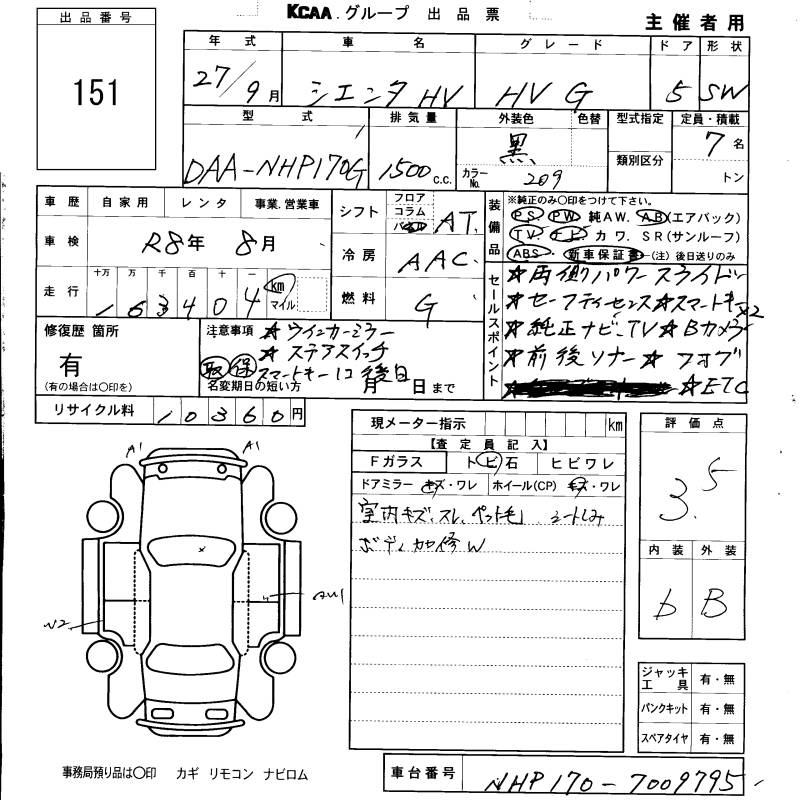 KCAA グループ 出品票
主催者用
出品番号
151
年式 車名 グレード ドア 形状
27/9月 シエンタHV HV G 5 SW
型式 排気量 外装色 色替 型式指定 定員・積載
DAA-NHP170G 1500 c.c. 黒 7名
カラーNo. 209 類別区分 トン
車歴 自家用 レンタ 事業.営業車
車検 R8年 8月
走行 十万 万 千 百 十 一 km マイル
163404
シフト フロア コラム AT
冷房 AAC
燃料 G
装備品 ※純正のみ〇印をつけて下さい。
PS. PW 純AW. AB(エアバック)
TV. ナビ. カワ. SR(サンルーフ)
ABS・新車保証書(注)後日送りのみ
セールスポイント
★両側パワースライド
★セーフティセンス★スマートキーx2
★純正ナビ、TV★Bカメラ
★前後ソナー★フォブ
★ETC
修復歴 箇所
有
(有の場合は〇印を)
注意事項 ★ウインカーミラー
★ステアスイッチ
取 保 スマートキー1コ後日
名変期日の短い方 月 日まで
リサイクル料 10360円
現メーター指示 km
【査定員記入】
Fガラス トビ石 ヒビワレ
ドアミラー キズ・ワレ ホイール(CP) キズ・ワレ
室内キズ、スレ、ペット毛 シートしみ
ボディ加修W
評価点
3.5
内装 外装
b B
A1 A1
AW1
W2
ジャッキ工具 有・無
パンクキット 有・無
スペアタイヤ 有・無
事務局預り品は〇印 カギ リモコン ナビロム
車台番号 NHP170-7009795